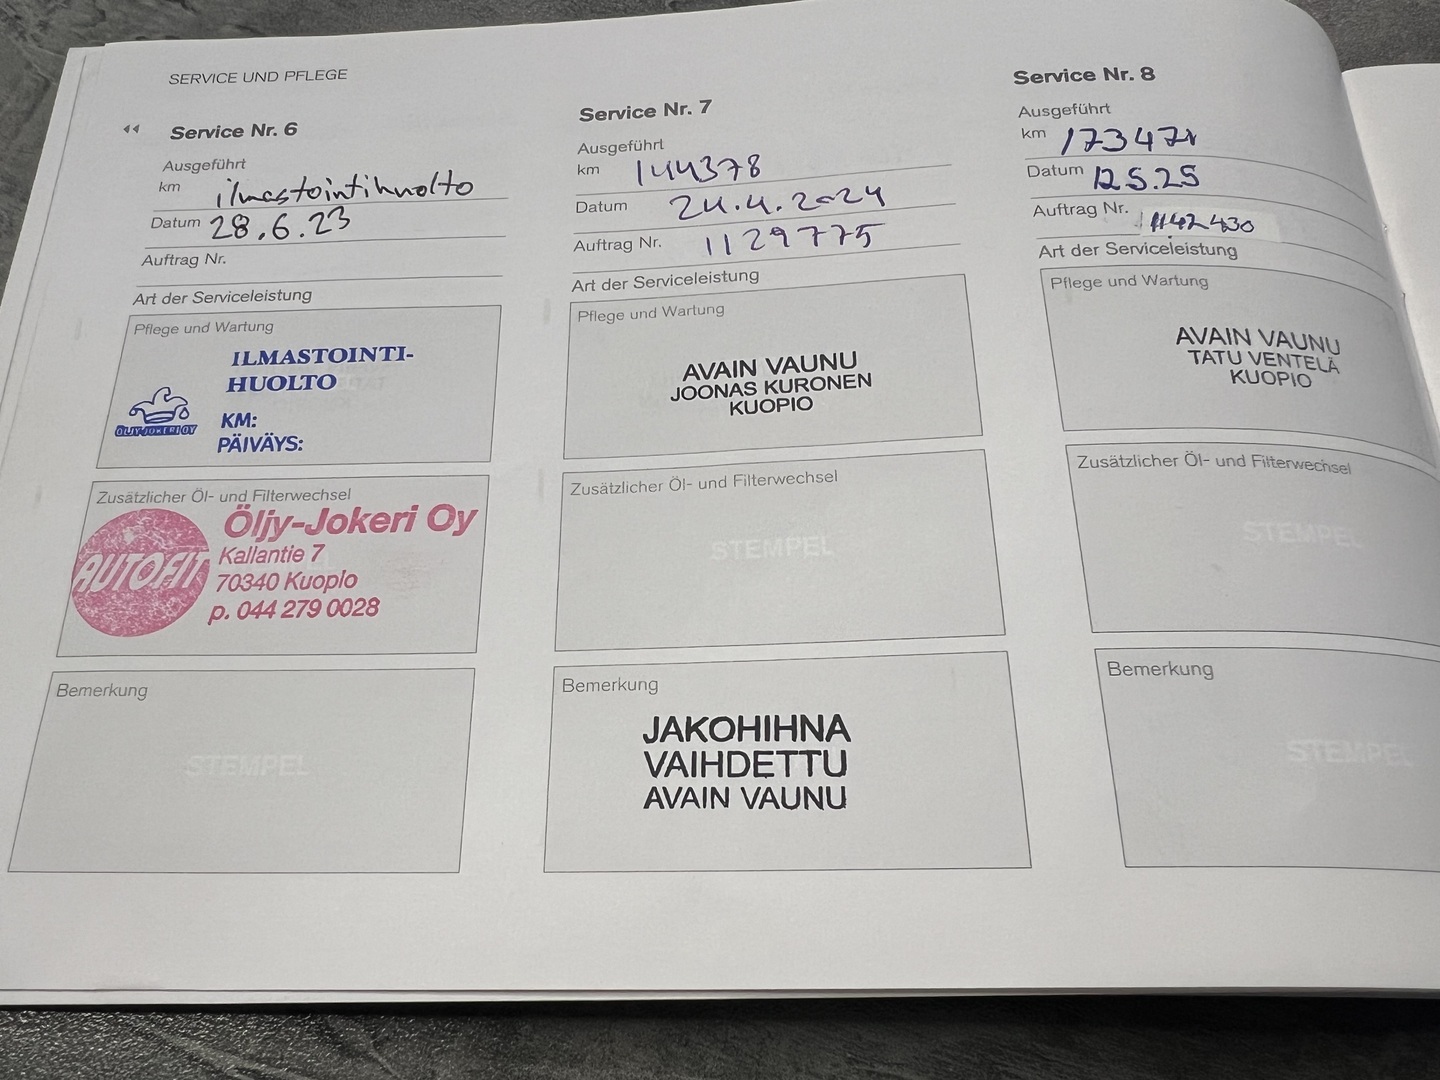 SERVICE UND PFLEGE
Service Nr. 6
Ausgeführt
km ilmastointihuolto
Datum 28.6.23
Auftrag Nr.
Art der Serviceleistung
Pflege und Wartung
ILMASTOINTI-
HUOLTO
ÖLJY-JOKERI OY
KM:
PÄIVÄYS:
Zusätzlicher Öl- und Filterwechsel
AUTOFIT
Öljy-Jokeri Oy
Kallantie 7
70340 Kuopio
p. 044 279 0028
Bemerkung
STEMPEL
Service Nr. 7
Ausgeführt
km 144378
Datum 24.4.2024
Auftrag Nr. 1129775
Art der Serviceleistung
Pflege und Wartung
AVAIN VAUNU
JOONAS KURONEN
KUOPIO
Zusätzlicher Öl- und Filterwechsel
STEMPEL
Bemerkung
JAKOHIHNA
VAIHDETTU
AVAIN VAUNU
Service Nr. 8
Ausgeführt
km
Datum 12.5.25
Auftrag Nr. 1142430
Art der Serviceleistung
Pflege und Wartung
AVAIN VAUNU
TATU VENTELÄ
KUOPIO
Zusätzlicher Öl- und Filterwechsel
STEMPEL
Bemerkung
STEMPEL